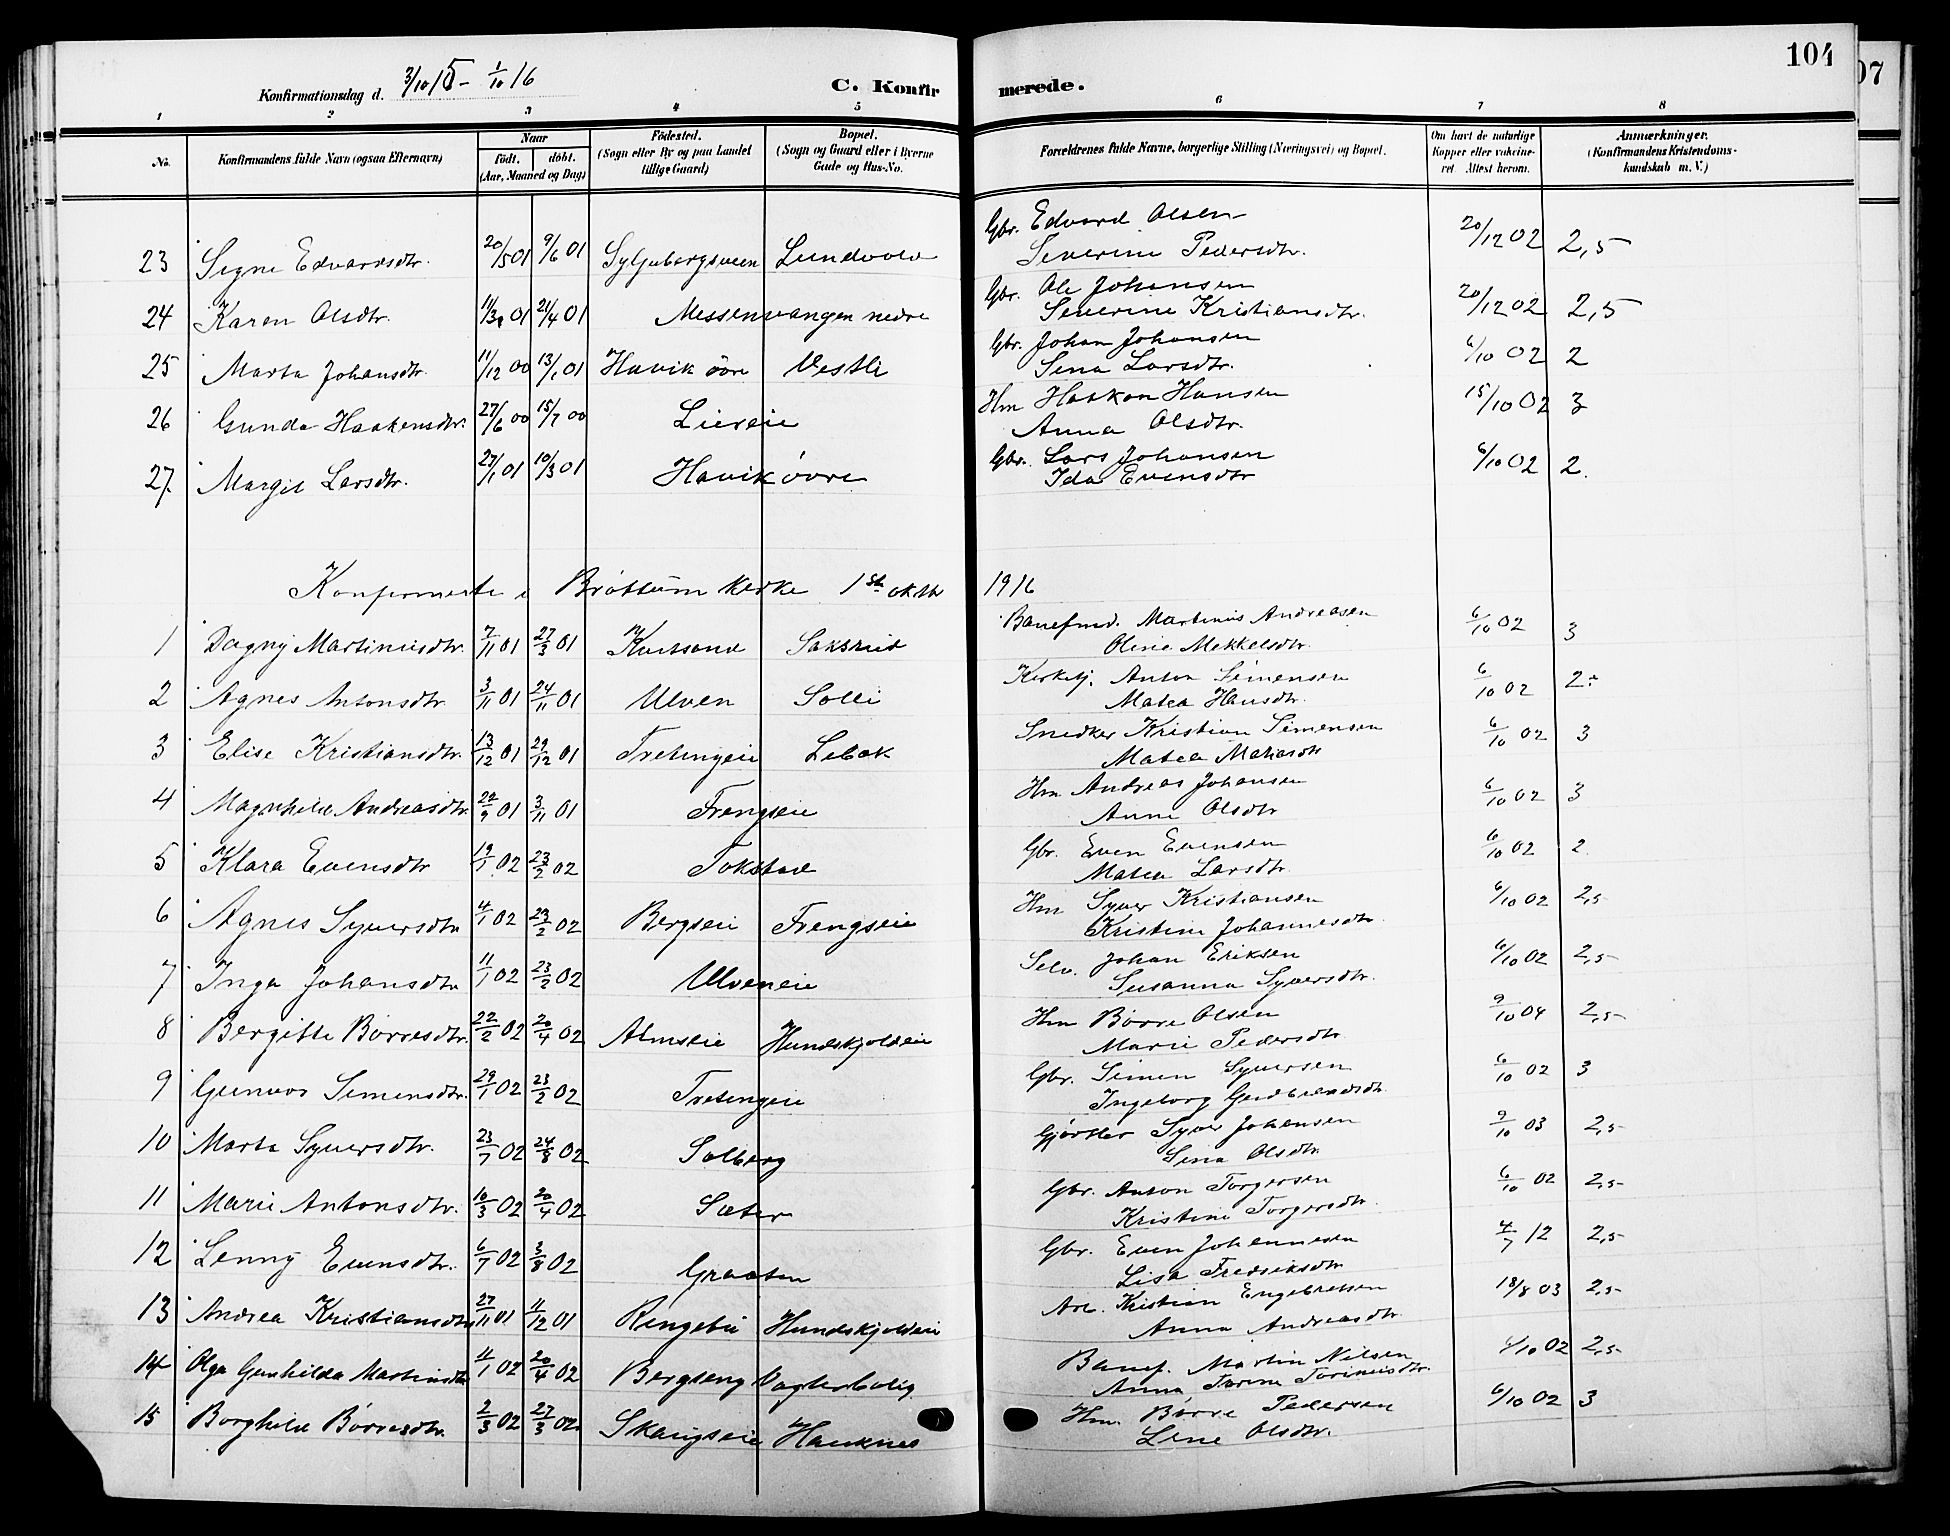 104
07
Konfirmationsdag d. 3/10 15 - 1/10 16 C. Konfirmerede.
1 2 3 4 5 6 7 8
No. Konfirmandens fulde Navn (ogsaa Efternavn) Naar født. døbt. (Aar, Maaned og Dag) Fødested. (Sogn eller By og paa Landet tillige Gaard) Bopæl. (Sogn og Gaard eller i Byerne Gade og Hus-No. Forældrenes fulde Navne, borgerlige Stilling (Næringsvei) og Bopæl. Om havt de naturlige Kopper eller vakcineret Attest herom. Anmærkninger. (Konfirmandens Kristendomskundskab m. V.)
23 Signe Edvardsdtr. 20/5 01 9/6 01 Lundvold Gbr. Edvard Olsen Severine Pedersdtr. 20/12 02 2,5
24 Karen Olsdtr. 11/3 01 21/4 01 Messenvangen nedre Gbr. Ole Johansen Severine Kristiansdtr. 20/12 02 2,5
25 Marta Johansdtr. 11/12 00 13/1 01 Havik øvre Vestli Gbr. Johan Johansen Sina Larsdtr. 6/10 02 2
26 Gunda Haakensdtr. 27/6 00 15/7 00 Liereie Hm Haakon Hansen Anna Olsdtr. 15/10 02 3
27. Margit Larsdtr. 27/1 01 10/3 01 Havik øvre Gbr. Lars Johansen Ida Evensdtr 6/10 02 2.
Konfirmerte i Brøttum kirke 1ste oktbr 1916
1 Dagny Martinusdtr. 7/11 01 27/3 01 Kvitsand Saksrud Banefmd. Martinus Andreasen Oline Mekkelsdtr. 6/10 02 3
2 Agnes Antonsdtr 3/11 01 24/11 01 Ulven Solli Kirketj. Anton Simensen Matea Hansdtr. 6/10 02 2 ÷
3 Elise Kristiansdtr. 13/12 01 29/12 01 Tretengeie Lebak Snedker Kristian Simensen Matea 6/10 02 3
4 Magnhild Andreasdtr. 01 3/11 01 Frengseie Hm Andreas Johansen Anne Olsdtr 6/10 02 3
5 Klara Evensdtr 19/1 02 23/2 02 Tokstad Gbr. Even Evensen Matea Larsdtr. 6/10 02 2.
6 Agnes Syversdtr 4/1 02 23/2 02 Bergseie Frengseie Hm Syver Kristiansen Kristine Johannesdtr. 6/10 02 2,5
7 Inga Johansdtr 11/1 02 23/2 02 Ulveneie Selv. Johan Eriksen Susanna Syversdtr. 6/10 02 2,5
8 Bergitte Børresdtr. 22/2 02 20/4 02 Almseie Hundskjoldeie Hm Børre Olsen Marie Pedersdtr. 9/10 04 2,5
9 Gunvor Simensdtr. 29/1 02 23/2 02 Tretengeie Gbr. Simen Syversen Ingeborg Gudbrandsdtr. 6/10 02 3
10 Marta Syversdtr. 23/7 02 24/8 02 Solberg Gjørtler Syver Johansen Sina Olsdtr. 9/10 03 2,5
11 Marie Antonsdtr. 10/3 02 20/4 02 Sæter Gbr. Anton Torgersen Kristine Torgersdtr. 6/10 02 2,5
12 Lenny Evensdtr. 6/7 02 3/8 02 Graaten Gbr. Even Johannesen Lisa Fredriksdtr 4/7 12 2,5
13 Andrea Kristiansdtr 27/11 01 11/12 01 Ringebu Hundskjoldeie Arb. Kristian Engebretsen Anna Andreasdtr. 18/8 03 2,5
14 Olga Gunhilda Martinsdtr 11/1 02 20/4 02 Bergseng Vogterbolig Banef. Martin Nilsen Anna Torine Torinusdtr. 6/10 02 2,5
15 Borghild Børresdtr. 2/3 02 27/3 02 Skaugseie Hauknes Hm. Børre Pedersen Line Olsdtr. 6/10 02 3